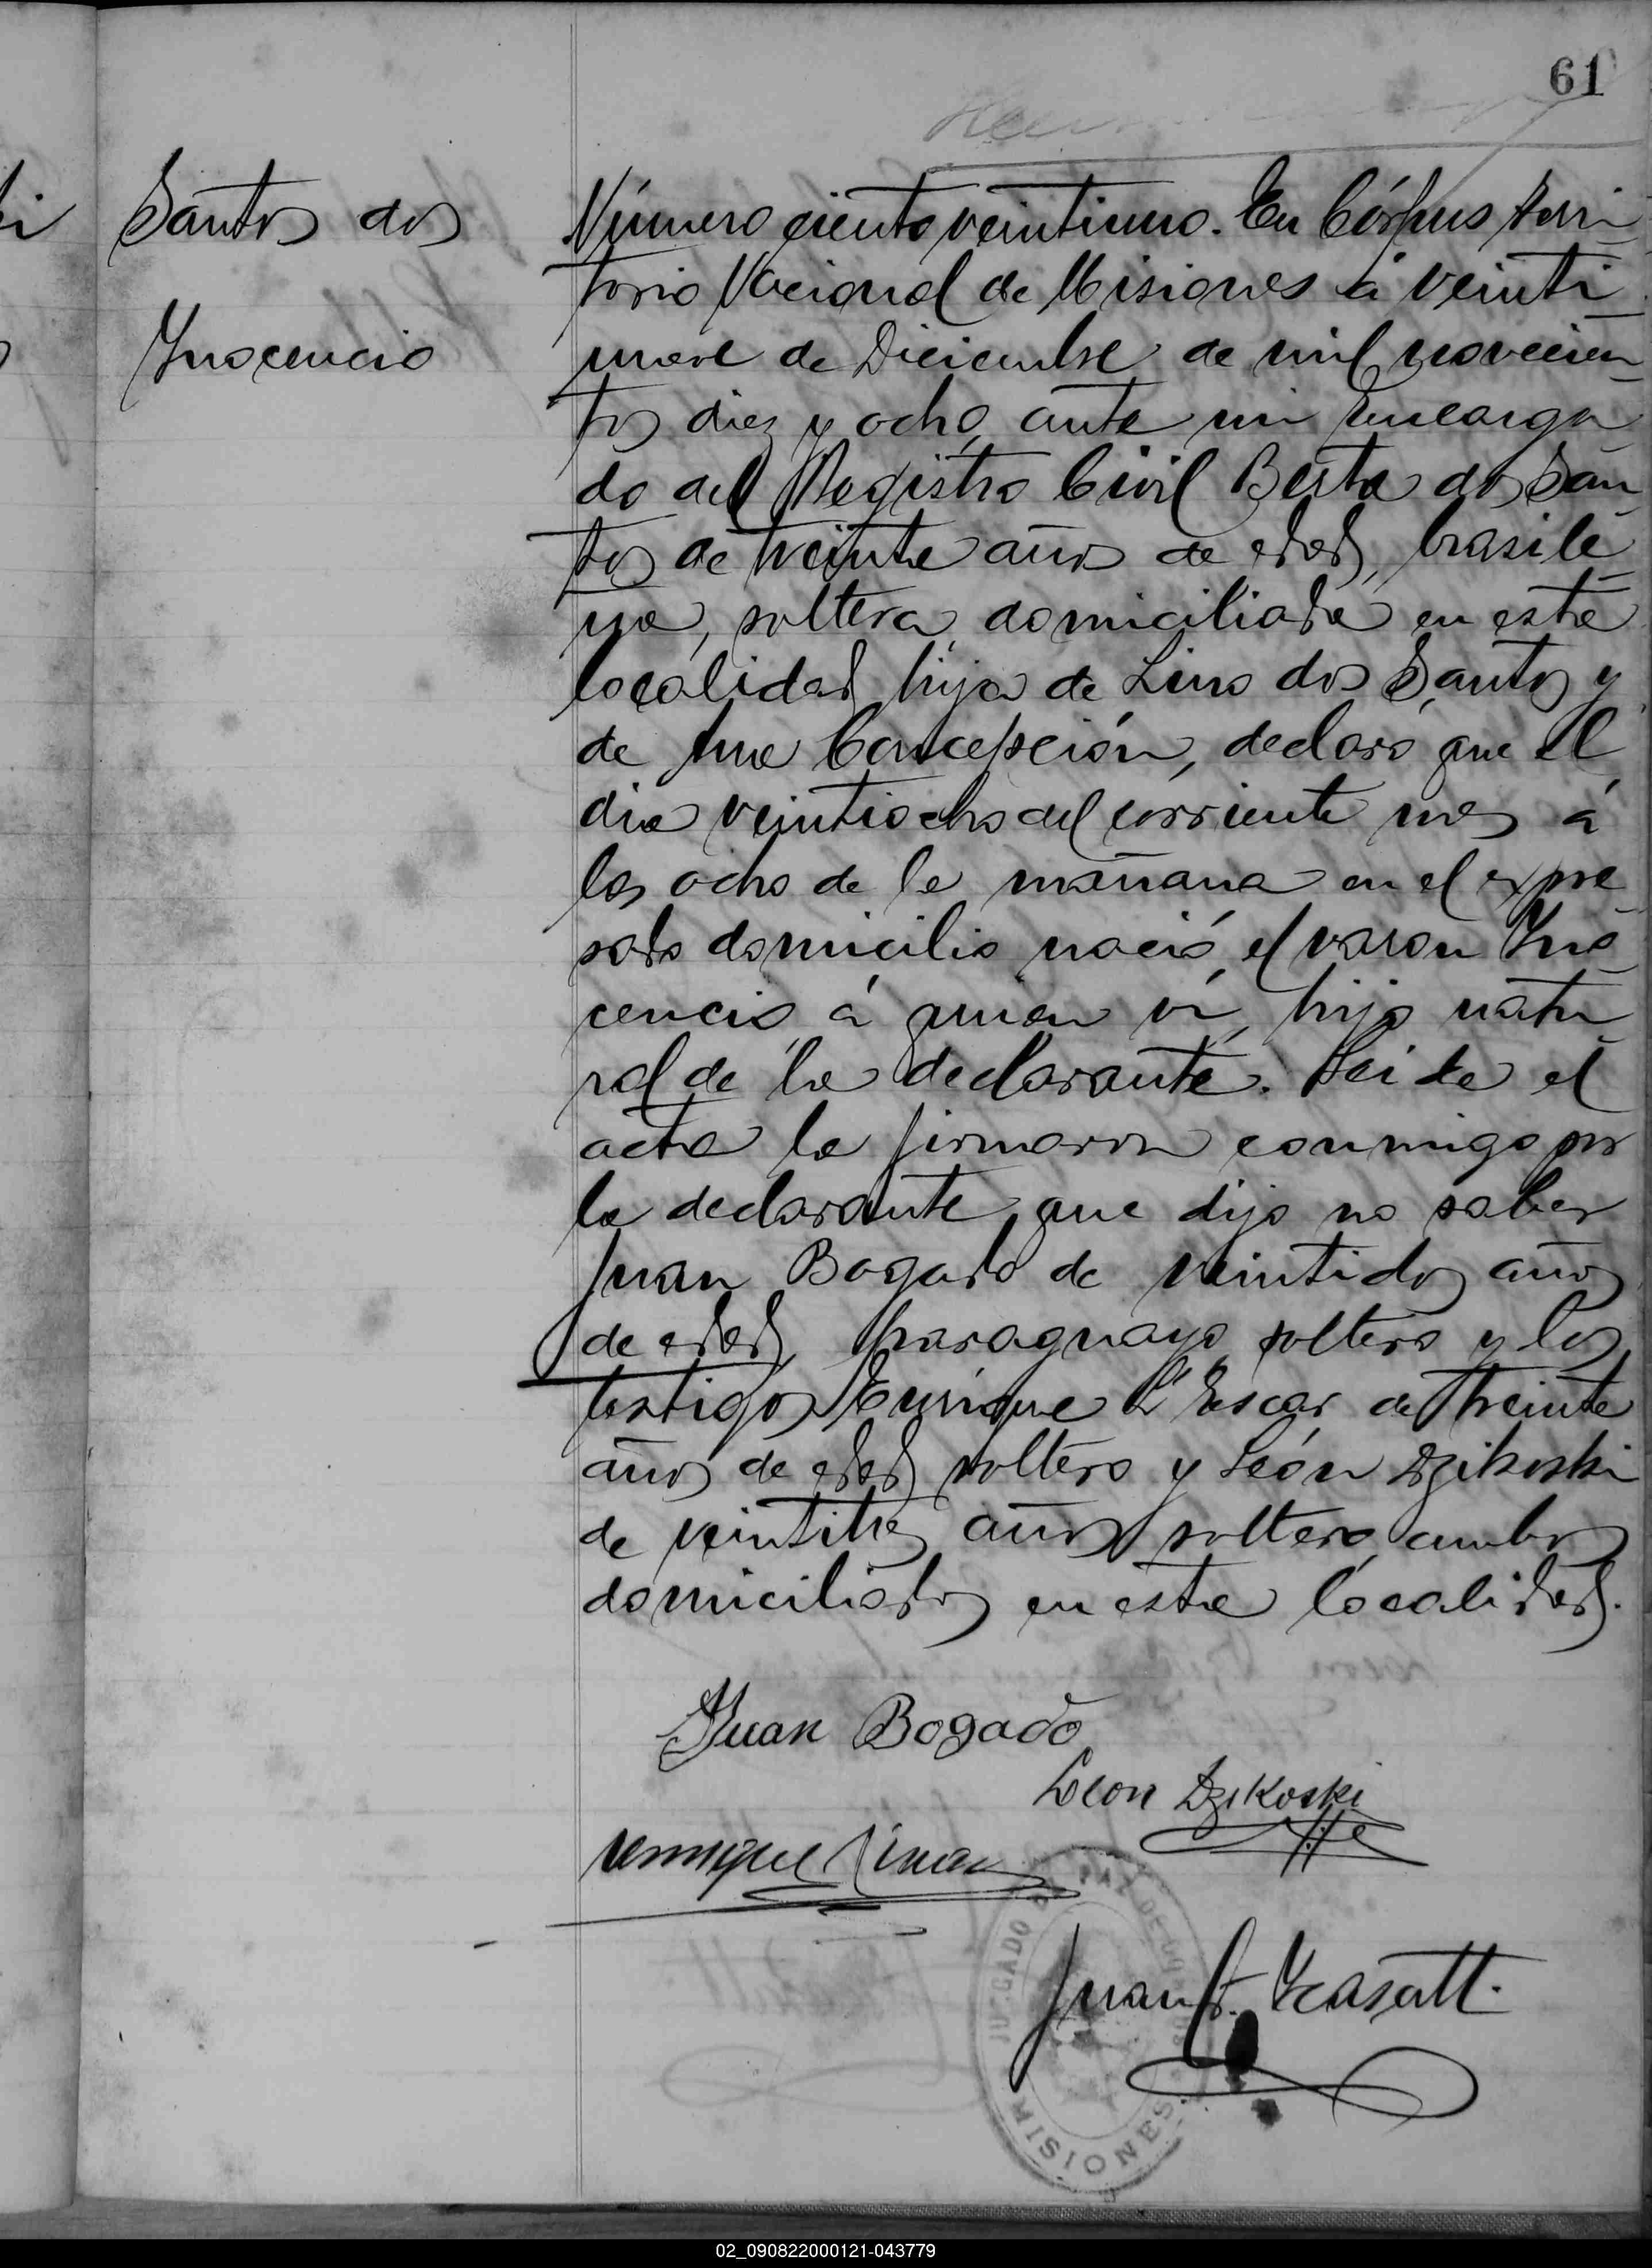 61
Santos dos
Inocencio
Número ciento veintiuno. En Córpus terri
torio Nacional de Misiones á veinti
nueve de Diciembre de mil novecien
tos diez y ocho, ante mi Encarga
do del Registro Civil Berta dos San
tos de veinte años de edad, brasile
ña, soltera, domiciliada en esta
localidad, hija de Lino dos Santos y
de Concepción, declaró que el
dia veintiocho del corriente mes á
las ocho de la mañana en el expre
sado domicilio nació el varon Ino
cencio, á quien ví, hijo natu
ral de la declarante. Leida el
acta la firmaron conmigo por
la declarante que dijo no saber
Juan Bogado de veintidos años
de edad, paraguayo, soltero y los
testigos Enrique de treinta
años de edad soltero y León Dzikoski
de veintitres años soltero, ambos
domiciliados en esta localidad.
Juan Bogado
Leon Dzikoski
Juan
JUZGADO DE PAZ DE CORPUS
MISIONES
02_090822000121-043779